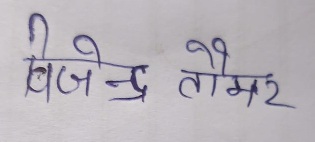 विजेन्द्र तौमर